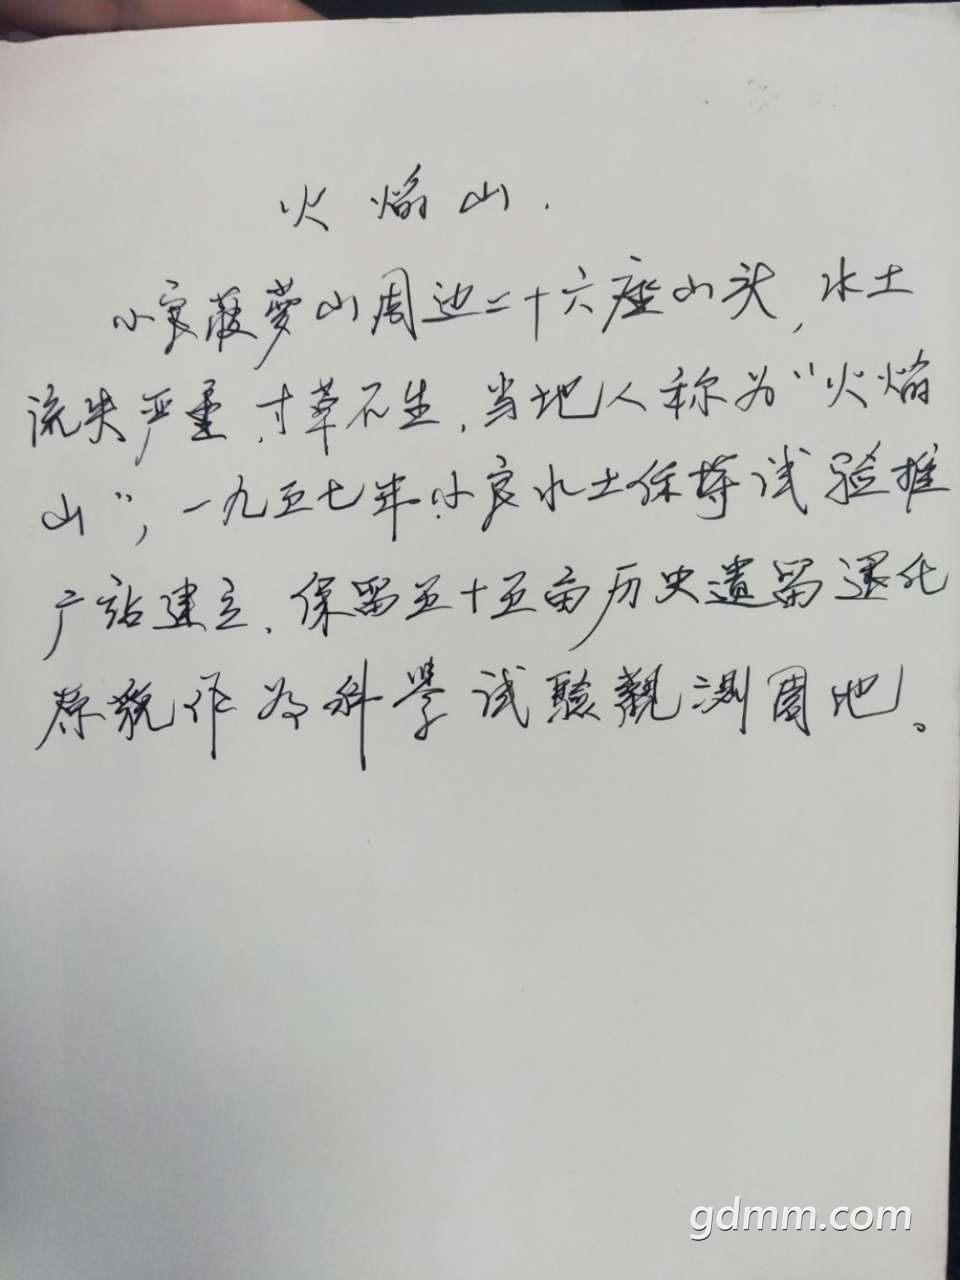 火焰山.
小良菠萝山周边二十六座山头,水土
流失严重,寸草不生,当地人称为“火焰
山”,一九五七年小良水土保持试验推
广站建立,保留五十五亩历史遗留退化
原貌作为科学试验觀测园地。
gdmm.com